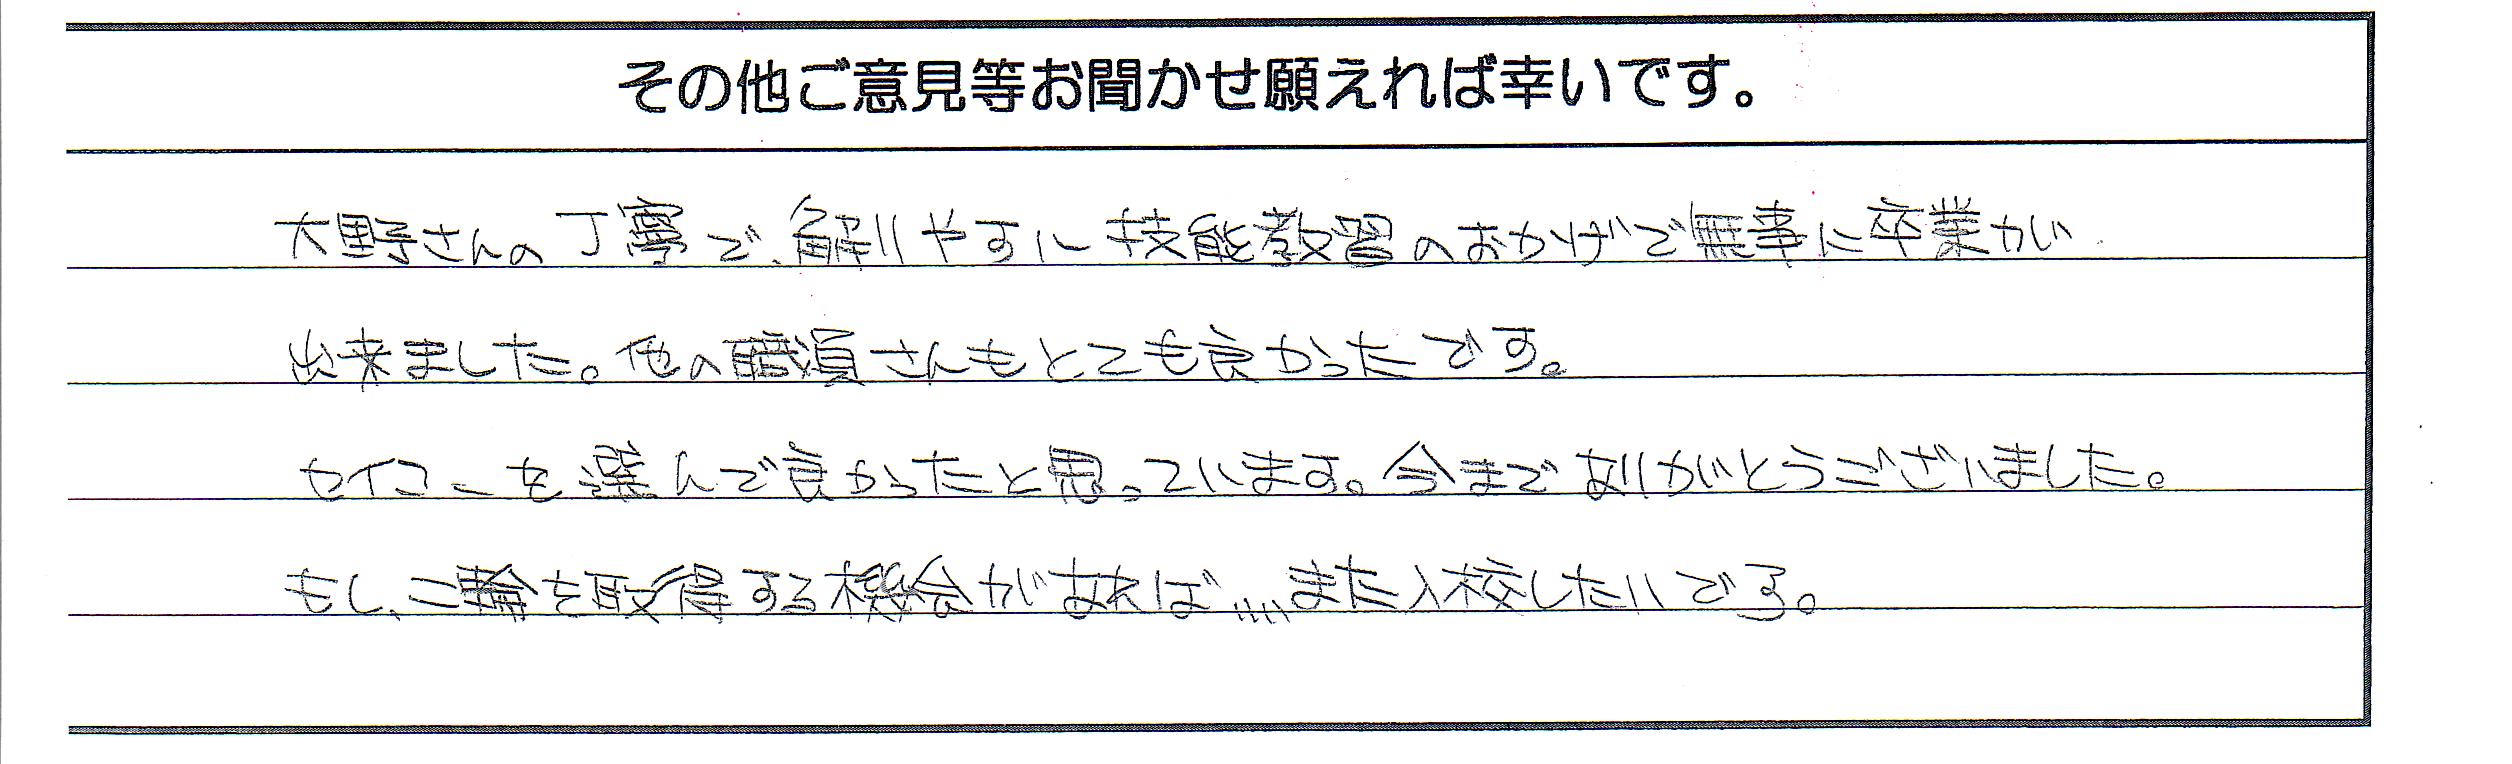 その他ご意見等お聞かせ願えれば幸いです。
大野さんの丁寧で、解りやすい技能教習のおかげで無事に卒業が
出来ました。他の職員さんもとても良かったです。
セイコーを選んで良かったと思っています。今までありがとうございました。
もし、二輪を取得する機会があれば....また入校したいです。